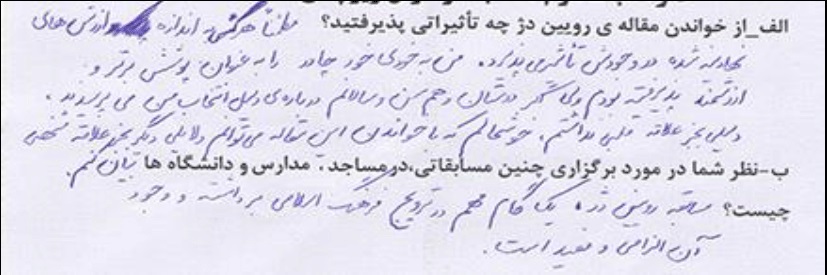 الف_از خواندن مقاله ی رویین دژ چه تأثیراتی پذیرفتید؟ مطمئناً هرکسی به اندازه ارزش های
نهادینه شده در وجودش تأثیر می پذیرد. من به خودی خود چادر را به عنوان پوششی برتر و
ارزشمند پذیرفته بودم ولی اگر دوستان و هم سن و سالانم درباره ی دلیل انتخاب من می پرسیدند،
دلیلی بجز علاقه قلبی نداشتم. خوشحالم که با خواندن این مقاله می توانم دلایلی دیگر بجز علاقه شخصی
ب-نظر شما در مورد برگزاری چنین مسابقاتی،در مساجد . مدارس و دانشگاه ها بیان کنم.
چیست؟ مسابقه رویین دژ، یک گام مهم در ترویج فرهنگ اسلامی برداشته و وجود
آن الزامی و مفید است.